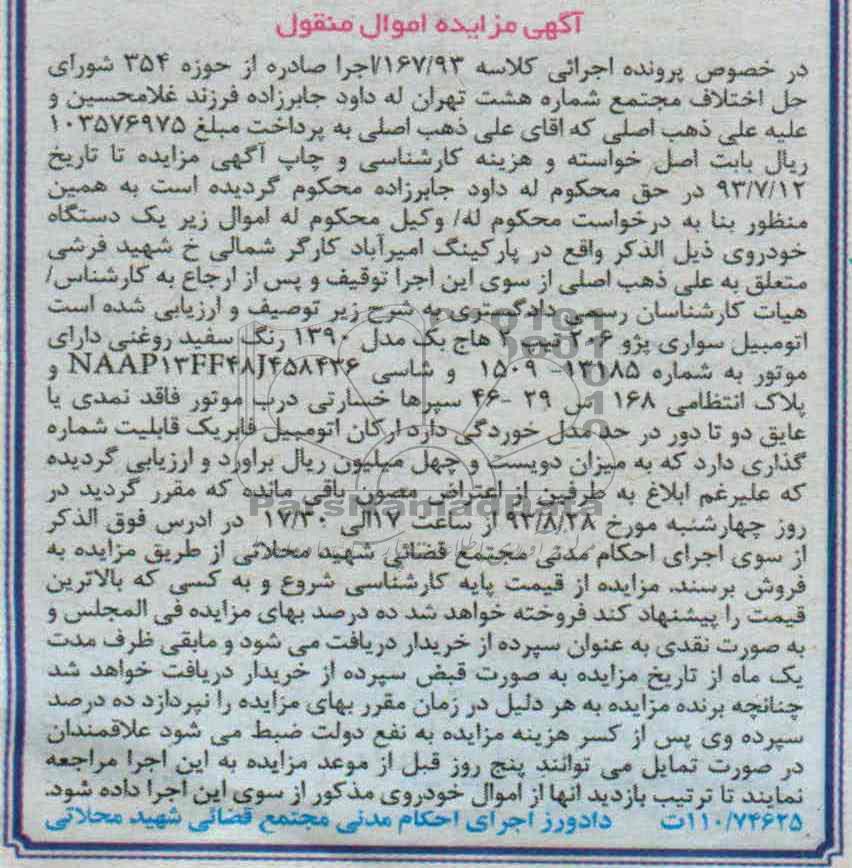 آگهی مزایده اموال منقول
در خصوص پرونده اجرائی کلاسه ۱۶۷/۹۳/اجرا صادره از حوزه ۳۵۴ شورای
حل اختلاف مجتمع شماره هشت تهران له داود جابرزاده فرزند غلامحسین و
علیه علی ذهب اصلی که اقای علی ذهب اصلی به پرداخت مبلغ ۱۰۳۵۷۶۹۷۵
ریال بابت اصل خواسته و هزینه کارشناسی و چاپ آگهی مزایده تا تاریخ
۹۳/۷/۱۲ در حق محکوم له داود جابرزاده محکوم گردیده است به همین
منظور بنا به درخواست محکوم له/ وکیل محکوم له اموال زیر یک دستگاه
خودروی ذیل الذکر واقع در پارکینگ امیرآباد کارگر شمالی خ شهید فرشی
متعلق به علی ذهب اصلی از سوی این اجرا توقیف و پس از ارجاع به کارشناس/
هیات کارشناسان رسمی دادگستری به شرح زیر توصیف و ارزیابی شده است
اتومبیل سواری پژو ۲۰۶ تیپ ۲ هاچ بک مدل ۱۳۹۰ رنگ سفید روغنی دارای
موتور به شماره ۱۳۱۸۵- ۱۵۰۹ و شاسی NAAP۱۳FF۴۸J۴۵۸۴۳۶ و
پلاک انتظامی ۱۶۸ س ۲۹ -۴۶ سپرها خسارتی درب موتور فاقد نمدی یا
عایق دو تا دور در حد مدل خوردگی دارد ارکان اتومبیل فابریک قابلیت شماره
گذاری دارد که به میزان دویست و چهل میلیون ریال براورد و ارزیابی گردیده
که علیرغم ابلاغ به طرفین از اعتراض مصون باقی مانده که مقرر گردید در
روز چهارشنبه مورخ ۹۳/۸/۲۸ از ساعت ۱۷الی ۱۷/۳۰ در ادرس فوق الذکر
از سوی اجرای احکام مدنی مجتمع قضائی شهید محلاتی از طریق مزایده به
فروش برسند. مزایده از قیمت پایه کارشناسی شروع و به کسی که بالاترین
قیمت را پیشنهاد کند فروخته خواهد شد ده درصد بهای مزایده فی المجلس و
به صورت نقدی به عنوان سپرده از خریدار دریافت می شود و مابقی ظرف مدت
یک ماه از تاریخ مزایده به صورت قبض سپرده از خریدار دریافت خواهد شد
چنانچه برنده مزایده به هر دلیل در زمان مقرر بهای مزایده را نپردازد ده درصد
سپرده وی پس از کسر هزینه مزایده به نفع دولت ضبط می شود علاقمندان
در صورت تمایل می توانند پنج روز قبل از موعد مزایده به این اجرا مراجعه
نمایند تا ترتیب بازدید انها از اموال خودروی مذکور از سوی این اجرا داده شود.
۱۱۰/۷۴۶۲۵ت دادورز اجرای احکام مدنی مجتمع قضائی شهید محلاتی
ParsNamadData